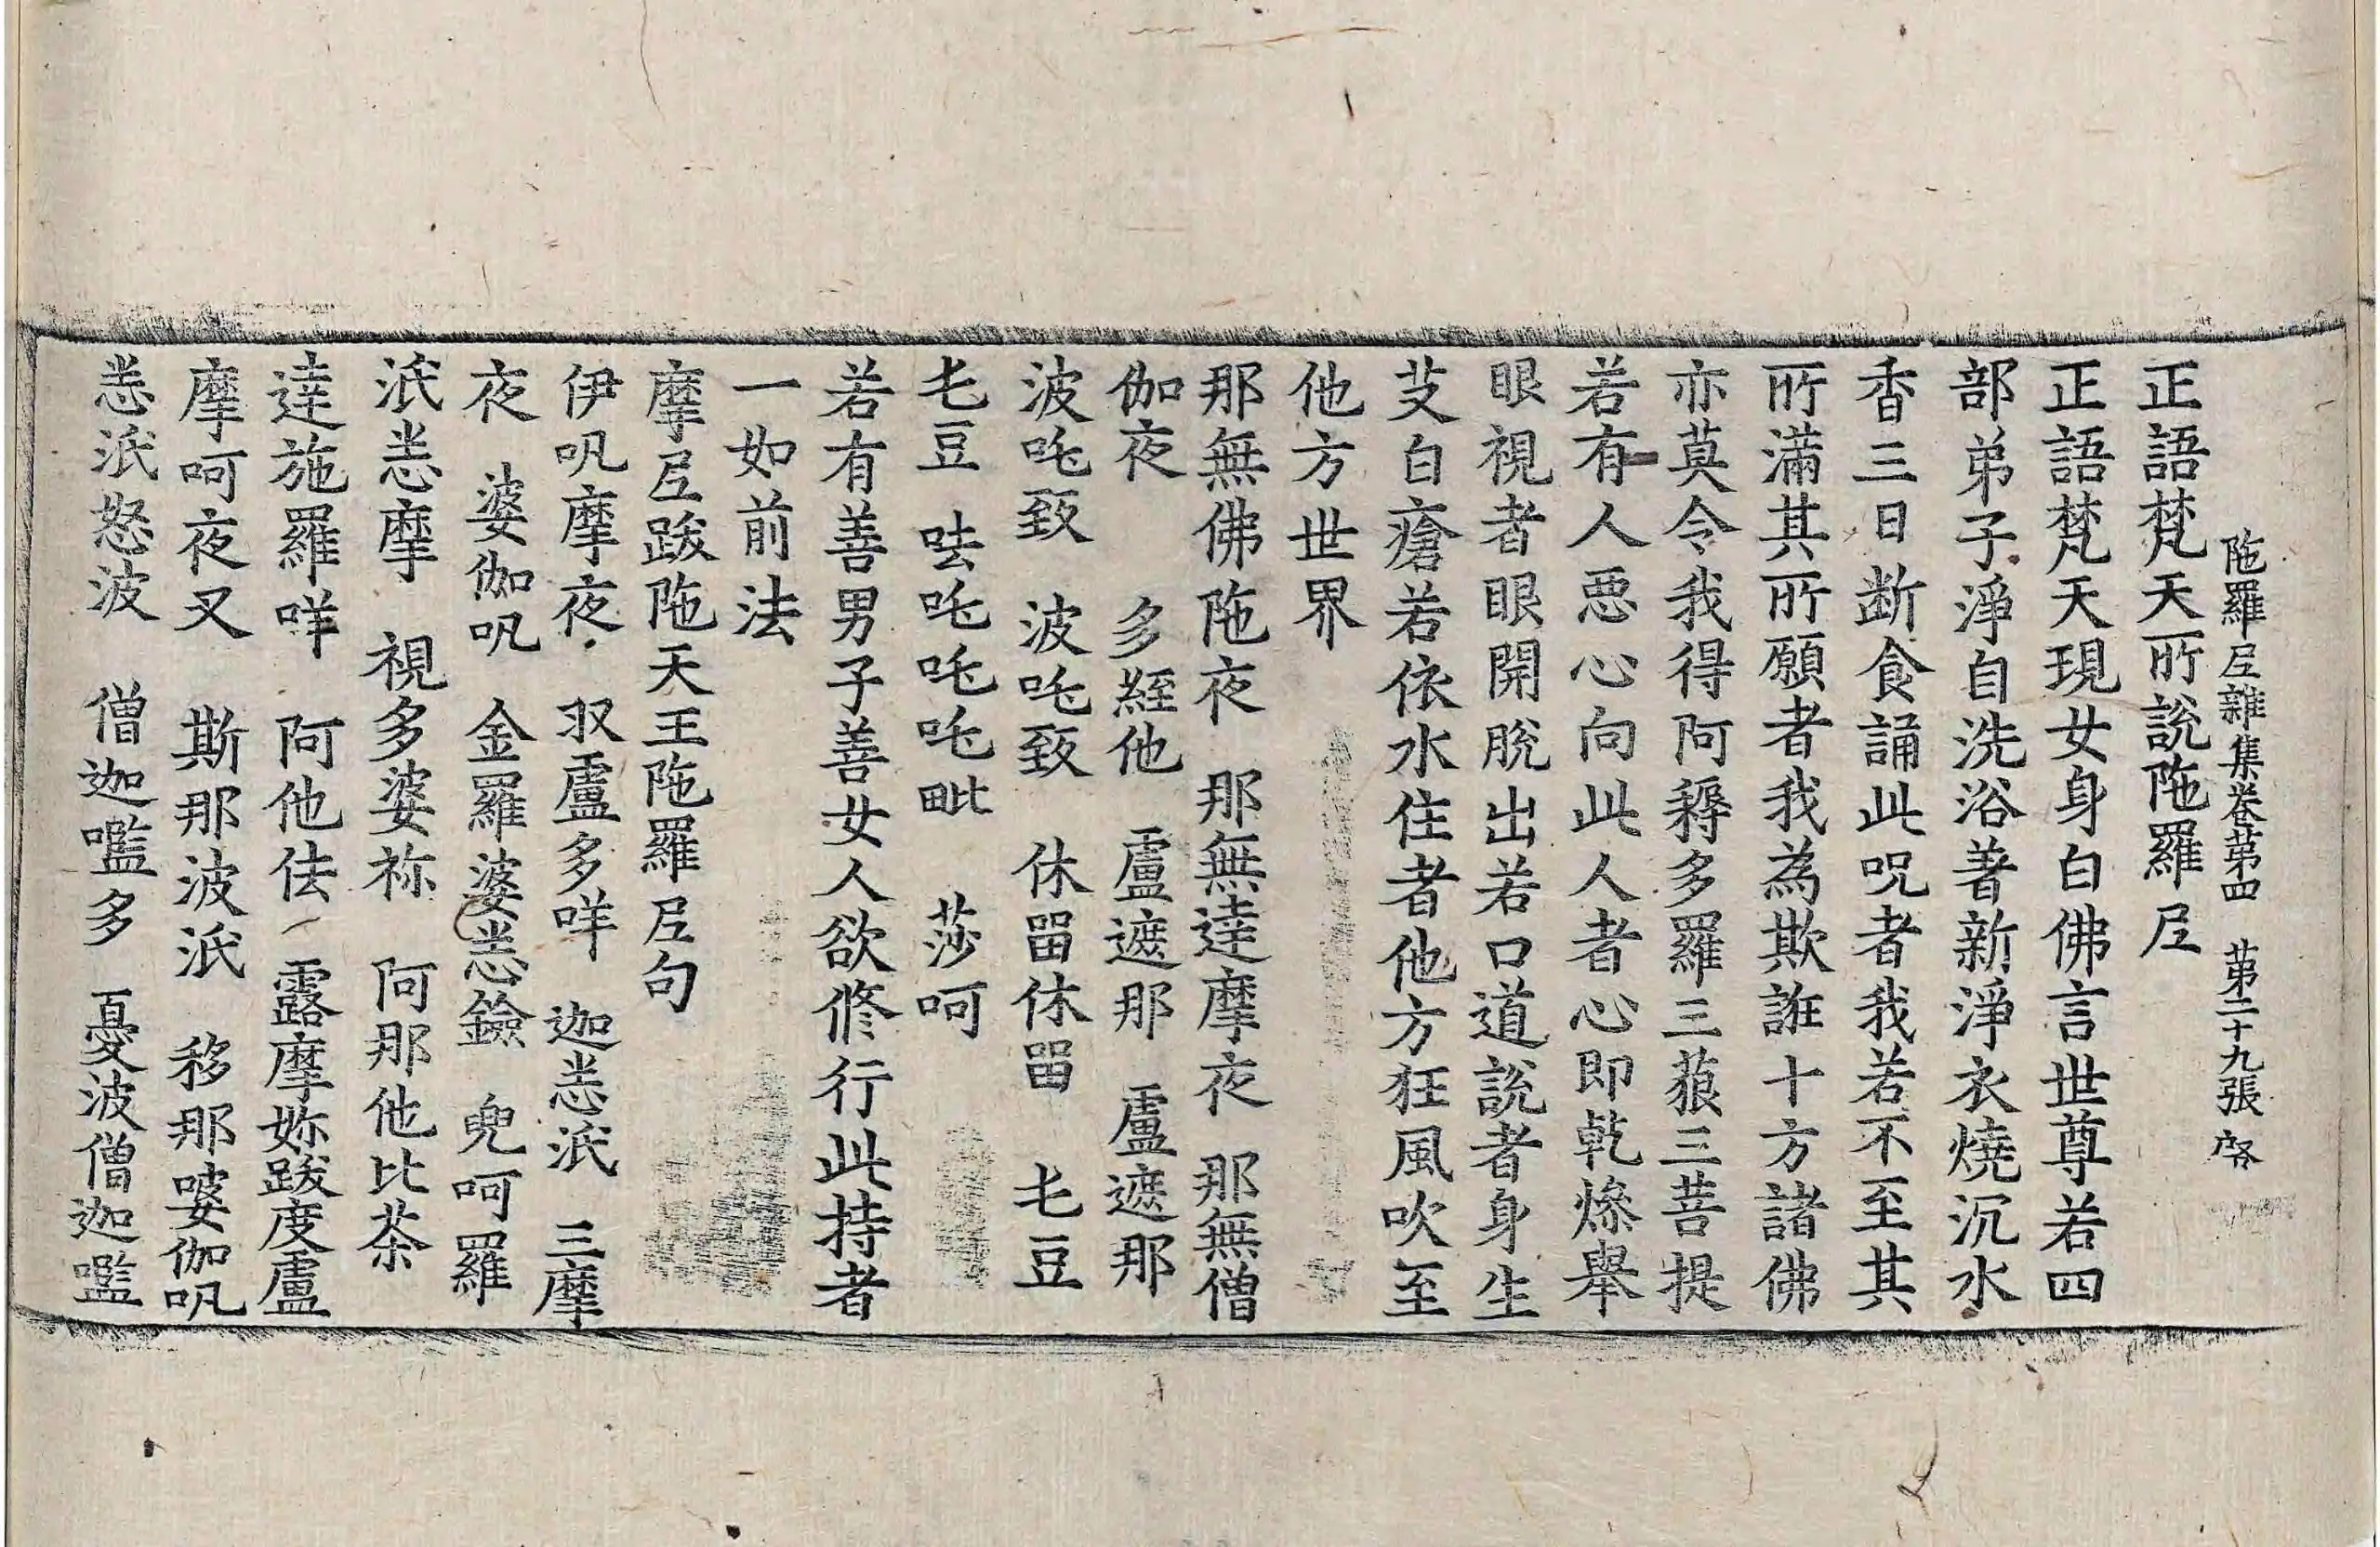 陁羅尼雜集卷苐四 苐二十九張 席
正語梵天所說陁羅尼
正語梵天現女身白佛言世尊若四
部弟子淨自洗浴著新淨衣燒沉水
香三日斷食誦此呪者我若不至其
所滿其所願者我為欺誑十方諸佛
亦莫令我得阿耨多羅三藐三菩提
若有人惡心向此人者心即乾燥舉
眼視者眼開脫出若口道說者身生
芆白瘡若依水住者他方狂風吹至
他方世界
那無佛陁夜 那無達摩夜 那無僧
伽夜 多絰他 盧遮那 盧遮那
波吒致 波吒致 休留休留 乇豆
乇豆 呿吒吒吒毗 莎呵
若有善男子善女人欲修行此持者
一如前法
摩尼跋陁天王陁羅尼句
伊㕹摩夜 㕛盧多咩 迦恙泜 三摩
夜 婆伽㕹 金羅婆恙鐱 兜呵羅
泜恙摩 視多婆祢 阿那他比荼
達施羅咩 阿他佉 露摩妳跋度盧
摩呵夜叉 斯那波泜 移那婆伽㕹
恙泜怒波 僧迦嚂多 憂波僧迦嚂